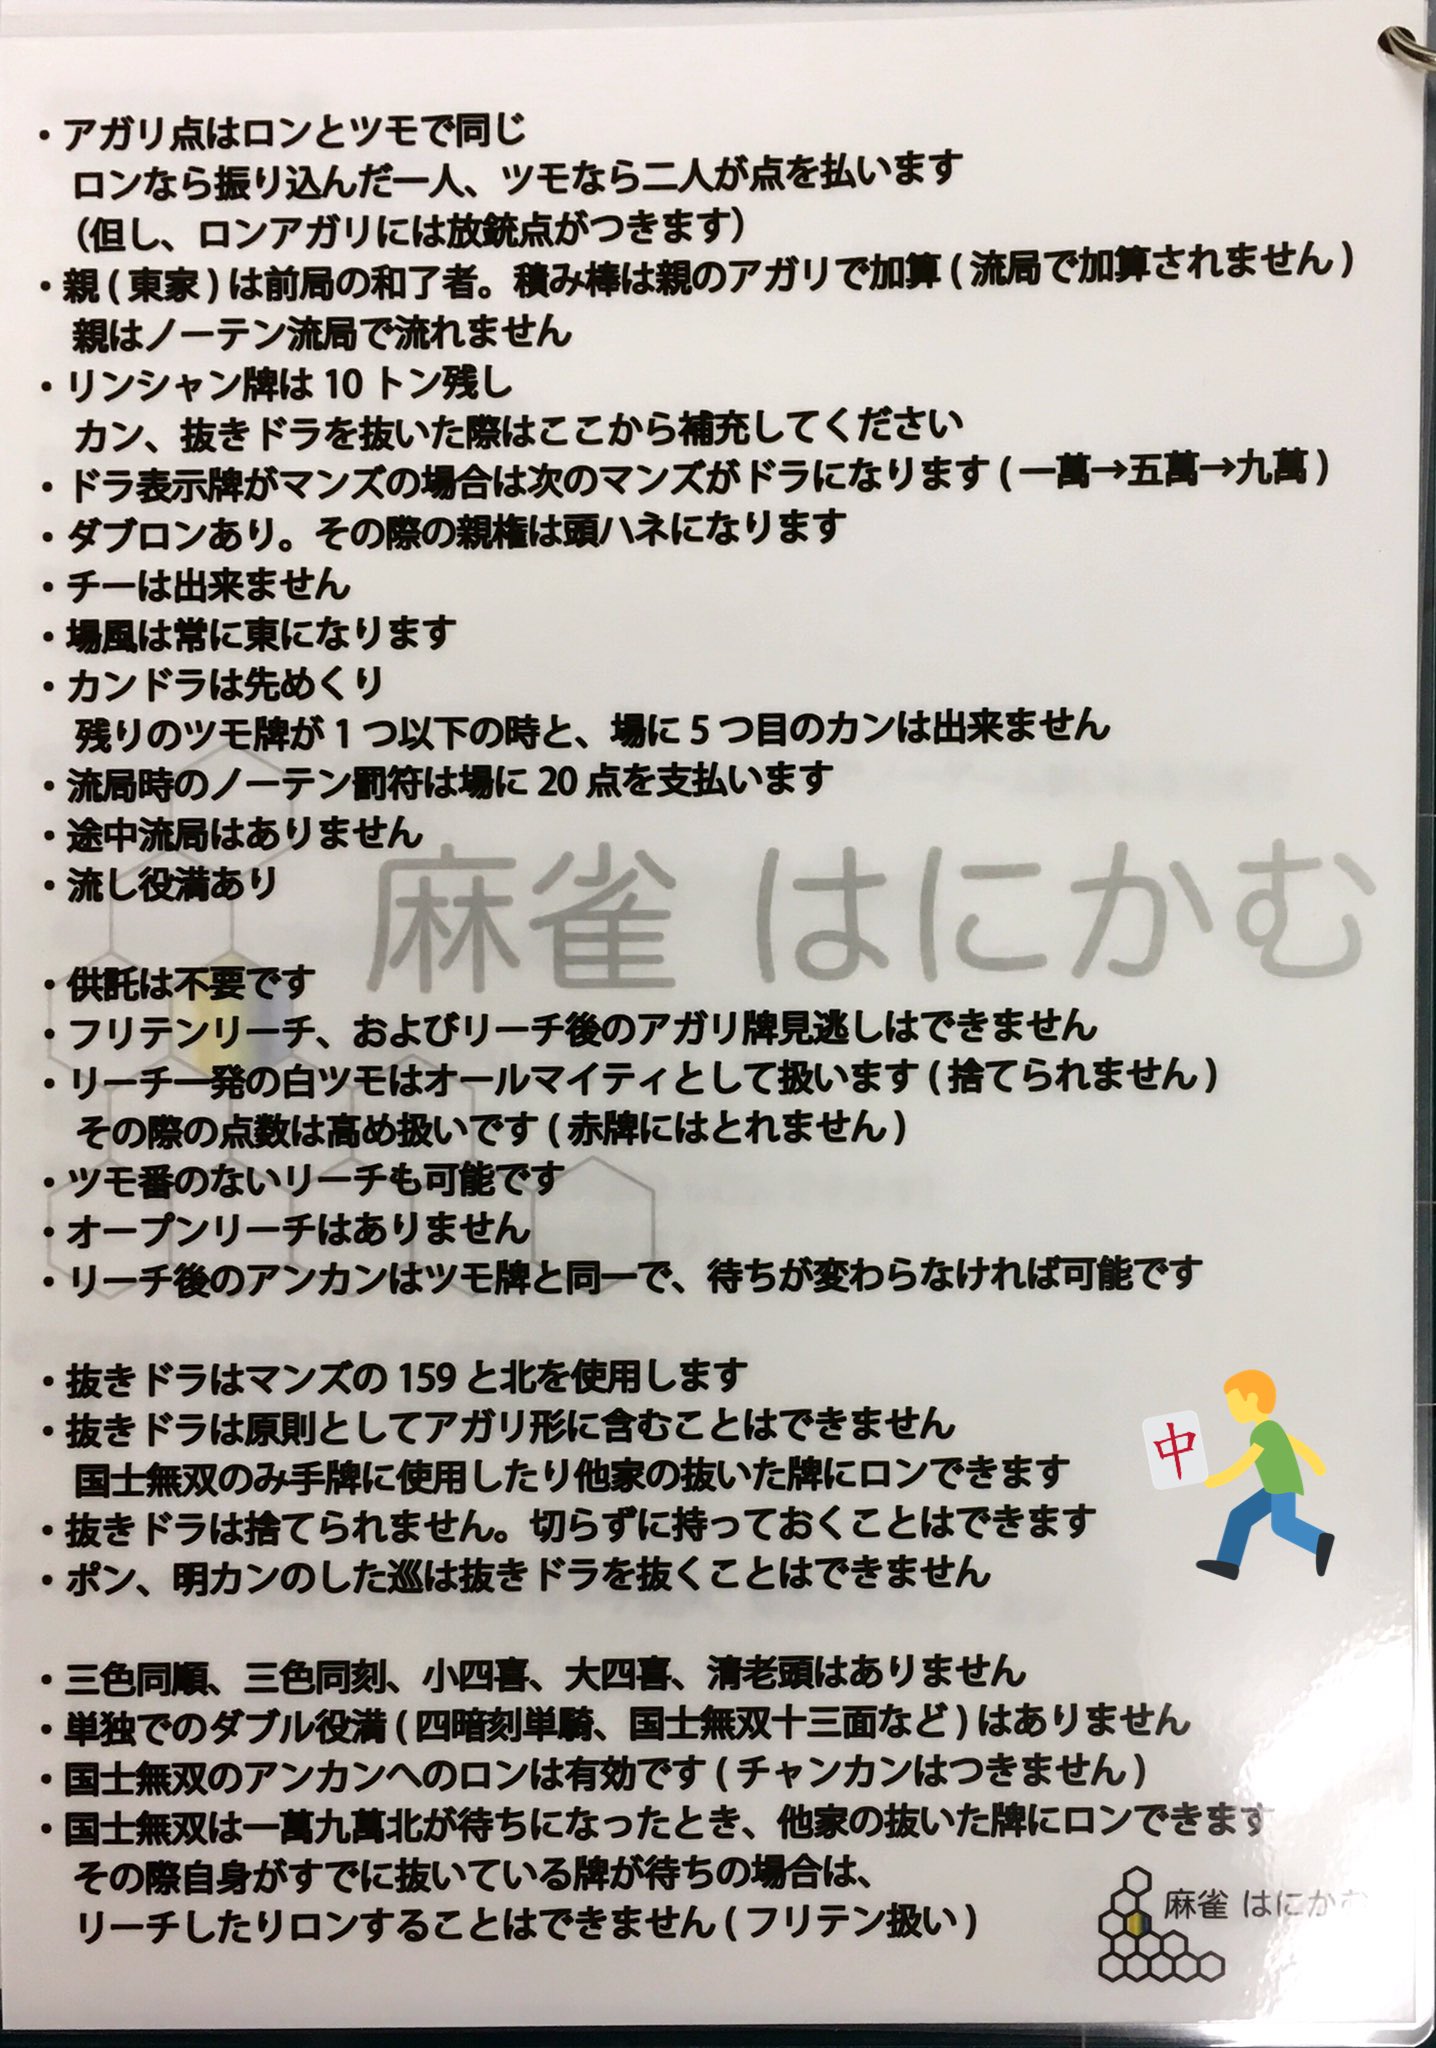 ・アガリ点はロンとツモで同じ
ロンなら振り込んだ一人、ツモなら二人が点を払います
（但し、ロンアガリには放銃点がつきます）
・親(東家)は前局の和了者。積み棒は親のアガリで加算(流局で加算されません)
親はノーテン流局で流れません
・リンシャン牌は10トン残し
カン、抜きドラを抜いた際はここから補充してください
・ドラ表示牌がマンズの場合は次のマンズがドラになります(一萬→五萬→九萬)
・ダブロンあり。その際の親権は頭ハネになります
・チーは出来ません
・場風は常に東になります
・カンドラは先めくり
残りのツモ牌が1つ以下の時と、場に5つ目のカンは出来ません
・流局時のノーテン罰符は場に20点を支払います
・途中流局はありません
・流し役満あり
麻雀 はにかむ
・供託は不要です
・フリテンリーチ、およびリーチ後のアガリ牌見逃しはできません
・リーチ一発の白ツモはオールマイティとして扱います(捨てられません)
その際の点数は高め扱いです(赤牌にはとれません)
・ツモ番のないリーチも可能です
・オープンリーチはありません
・リーチ後のアンカンはツモ牌と同一で、待ちが変わらなければ可能です
・抜きドラはマンズの159と北を使用します
・抜きドラは原則としてアガリ形に含むことはできません
国士無双のみ手牌に使用したり他家の抜いた牌にロンできます
・抜きドラは捨てられません。切らずに持っておくことはできます
・ポン、明カンのした巡は抜きドラを抜くことはできません
中
・三色同順、三色同刻、小四喜、大四喜、清老頭はありません
・単独でのダブル役満(四暗刻単騎、国士無双十三面など)はありません
・国士無双のアンカンへのロンは有効です(チャンカンはつきません)
・国士無双は一萬九萬北が待ちになったとき、他家の抜いた牌にロンできます
その際自身がすでに抜いている牌が待ちの場合は、
リーチしたりロンすることはできません(フリテン扱い)
麻雀 はにかむ